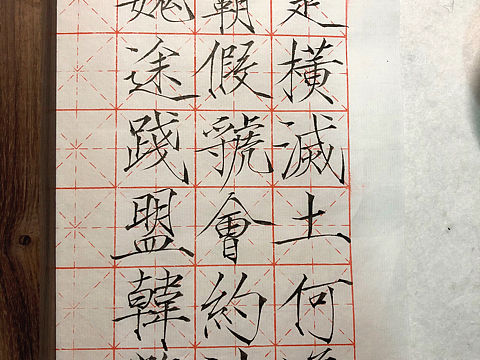 橫滅土何
霸假虢會約
魏途踐盟韓